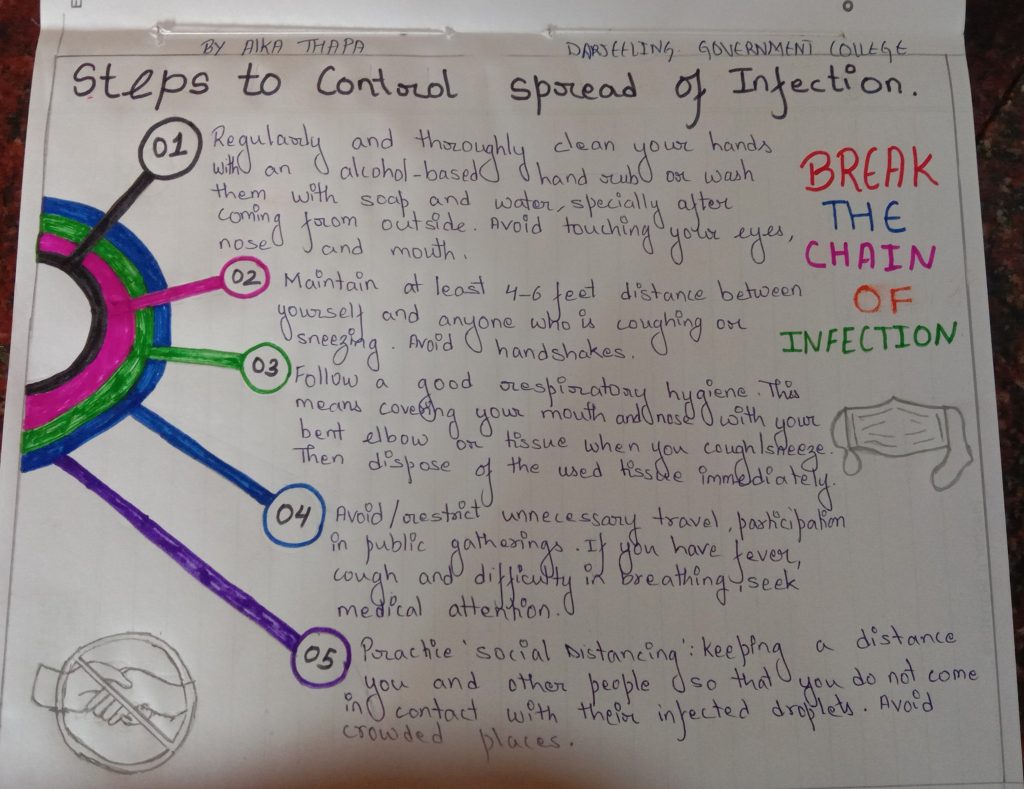 BY AIKA THAPA
DARJEELING GOVERNMENT COLLEGE
Steps to Control spread of Infection.
01
Regularly and thoroughly clean your hands
with an alcohol-based hand rub or wash
them with soap and water, specially after
coming from outside. Avoid touching your eyes,
nose and mouth.
BREAK
THE
CHAIN
OF
INFECTION
02
Maintain at least 4-6 feet distance between
yourself and anyone who is coughing or
sneezing. Avoid handshakes.
03
Follow a good respiratory hygiene. This
means covering your mouth and nose with your
bent elbow or tissue when you cough/sneeze.
Then dispose of the used tissue immediately.
04
Avoid/restrict unnecessary travel, participation
in public gatherings. If you have fever,
cough and difficulty in breathing, seek
medical attention.
05
Practice 'Social Distancing': keeping a distance
you and other people so that you do not come
in contact with their infected droplets. Avoid
crowded places.